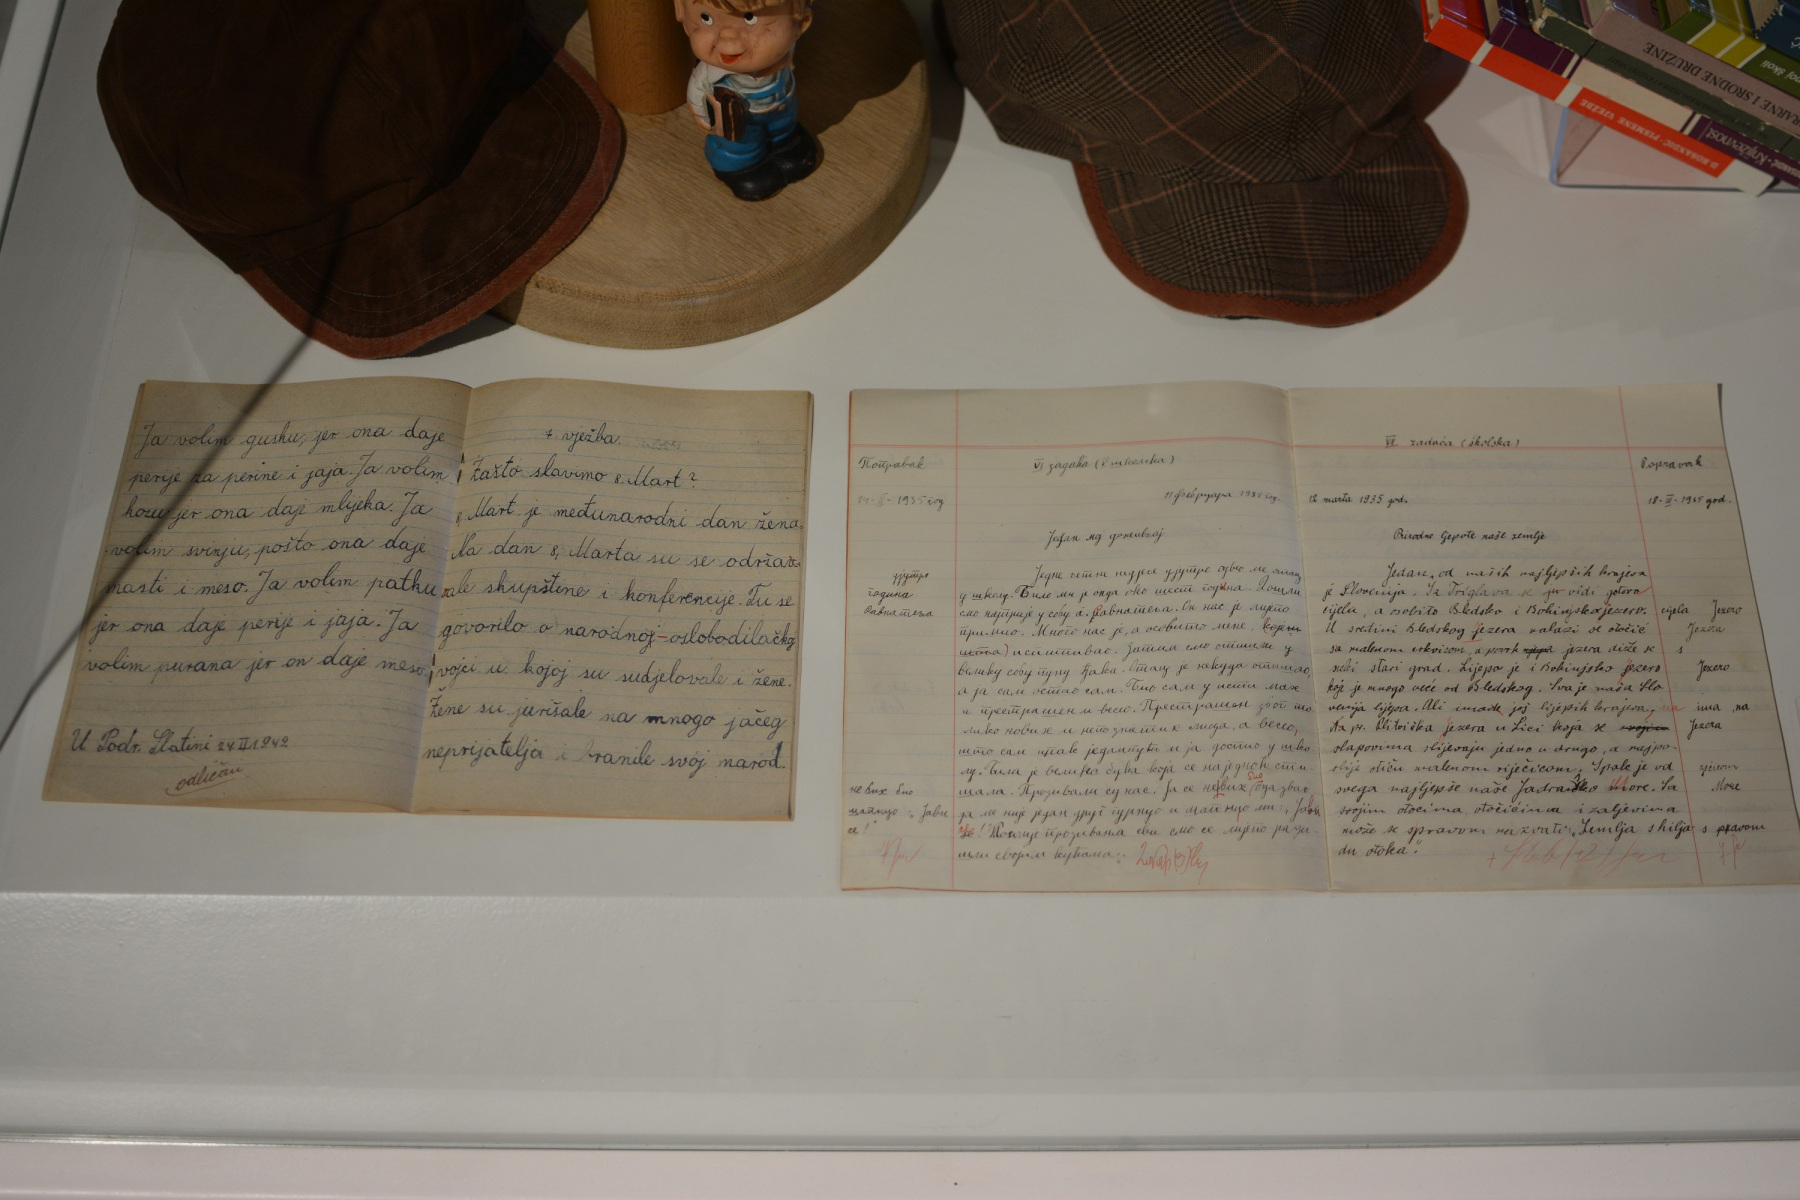 RARNE I SRODNE DRUŽINE
noj školi
D. ROSANDIĆ • PISMENE VJEŽBE
Književnost
Ja volim gusku, jer ona daje
perije za perine i jaja. Ja volim
kozu jer ona daje mlijeka. Ja
volim svinju, pošto ona daje
masti i meso. Ja volim patku
jer ona daje perije i jaja. Ja
volim purana jer on daje meso.
U Podr. Slatini 24.II.1949
odličan
7 vježba.
Zašto slavimo 8. Mart?
8. Mart je međunarodni dan žena.
Na dan 8. Marta su se održa
vale skupštine i konferencije. Tu se
govorilo o narodnoj-oslobodilačkoj
vojci u kojoj su sudjelovale i žene.
Žene su jurišale na mnogo jačeg
neprijatelja i branile svoj narod.
Поправак
1935 год
ујутро
година
Равнатеља
не бих био
се!
VI задаћа (школска)
11 фебруара 1935 год.
Један мој доживљај
у школу. Било ми је онда око шест година. Дошли
смо најприје у собу г. равнатеља. Он нас је лијепо
примио. Много нас је, а особито мене,
испитивао. Затим смо отишли у
велику собу пуну ђака. Отац је некуда отишао,
а ја сам остао сам. Био сам у исти мах
и престрашен и весео. Престрашен због то
лико нових и непознатих лица, а весео,
што сам ипак једанпут и ја доспио у шко
лу. Била је велика бука која се најједном сти
шала. Прозивали су нас. Ја се не бих био
да ме није један други гурнуо и
се! Послије прозивања сви смо се лијепо рази
шли својим кућама.
VI. zadaća (školska)
12 marta 1935 god.
Prirodne ljepote naše zemlje
Jedan od naših najljepših krajeva
je Slovenija. Sa Triglava se jer vidi gotovo
cijela, a osobito Bledsko i Bohinjsko jezero.
U sredini Bledskog jezera nalazi se otočić
sa malenom crkvicom, a povrh jezera diže se
neki stari grad. Lijepo je i Bohinjsko jezero
koje je mnogo veće od Bledskog. Sva je naša Slo
venija lijepa. Ali imade još lijepih krajeva,
Na pr. Plitvička jezera u Lici koja se
slapovima slijevaju jedno u drugo, a najpo-
slije otiču malenom riječicom. Ipak je od
svega najljepše naše Jadransko More. Sa
svojim otocima, otočićima i zaljevima
može se s pravom nazvati: „Zemlja s hilja
du otoka".
Popravak
18-III-1935 god.
cijela Jezero
Jezera
s
Jezero
ima, na
Jezera
More
s pravom